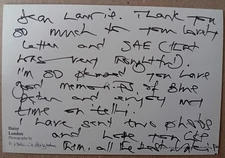 Dear Laurie. Thank you
so much for your lovely
letter and SAE (that
was very thoughtful).
I'm so pleased you have
good memories of Blue
Peter and enjoy my
time on telly.
I have sent two photos
and hope you
all the best
London